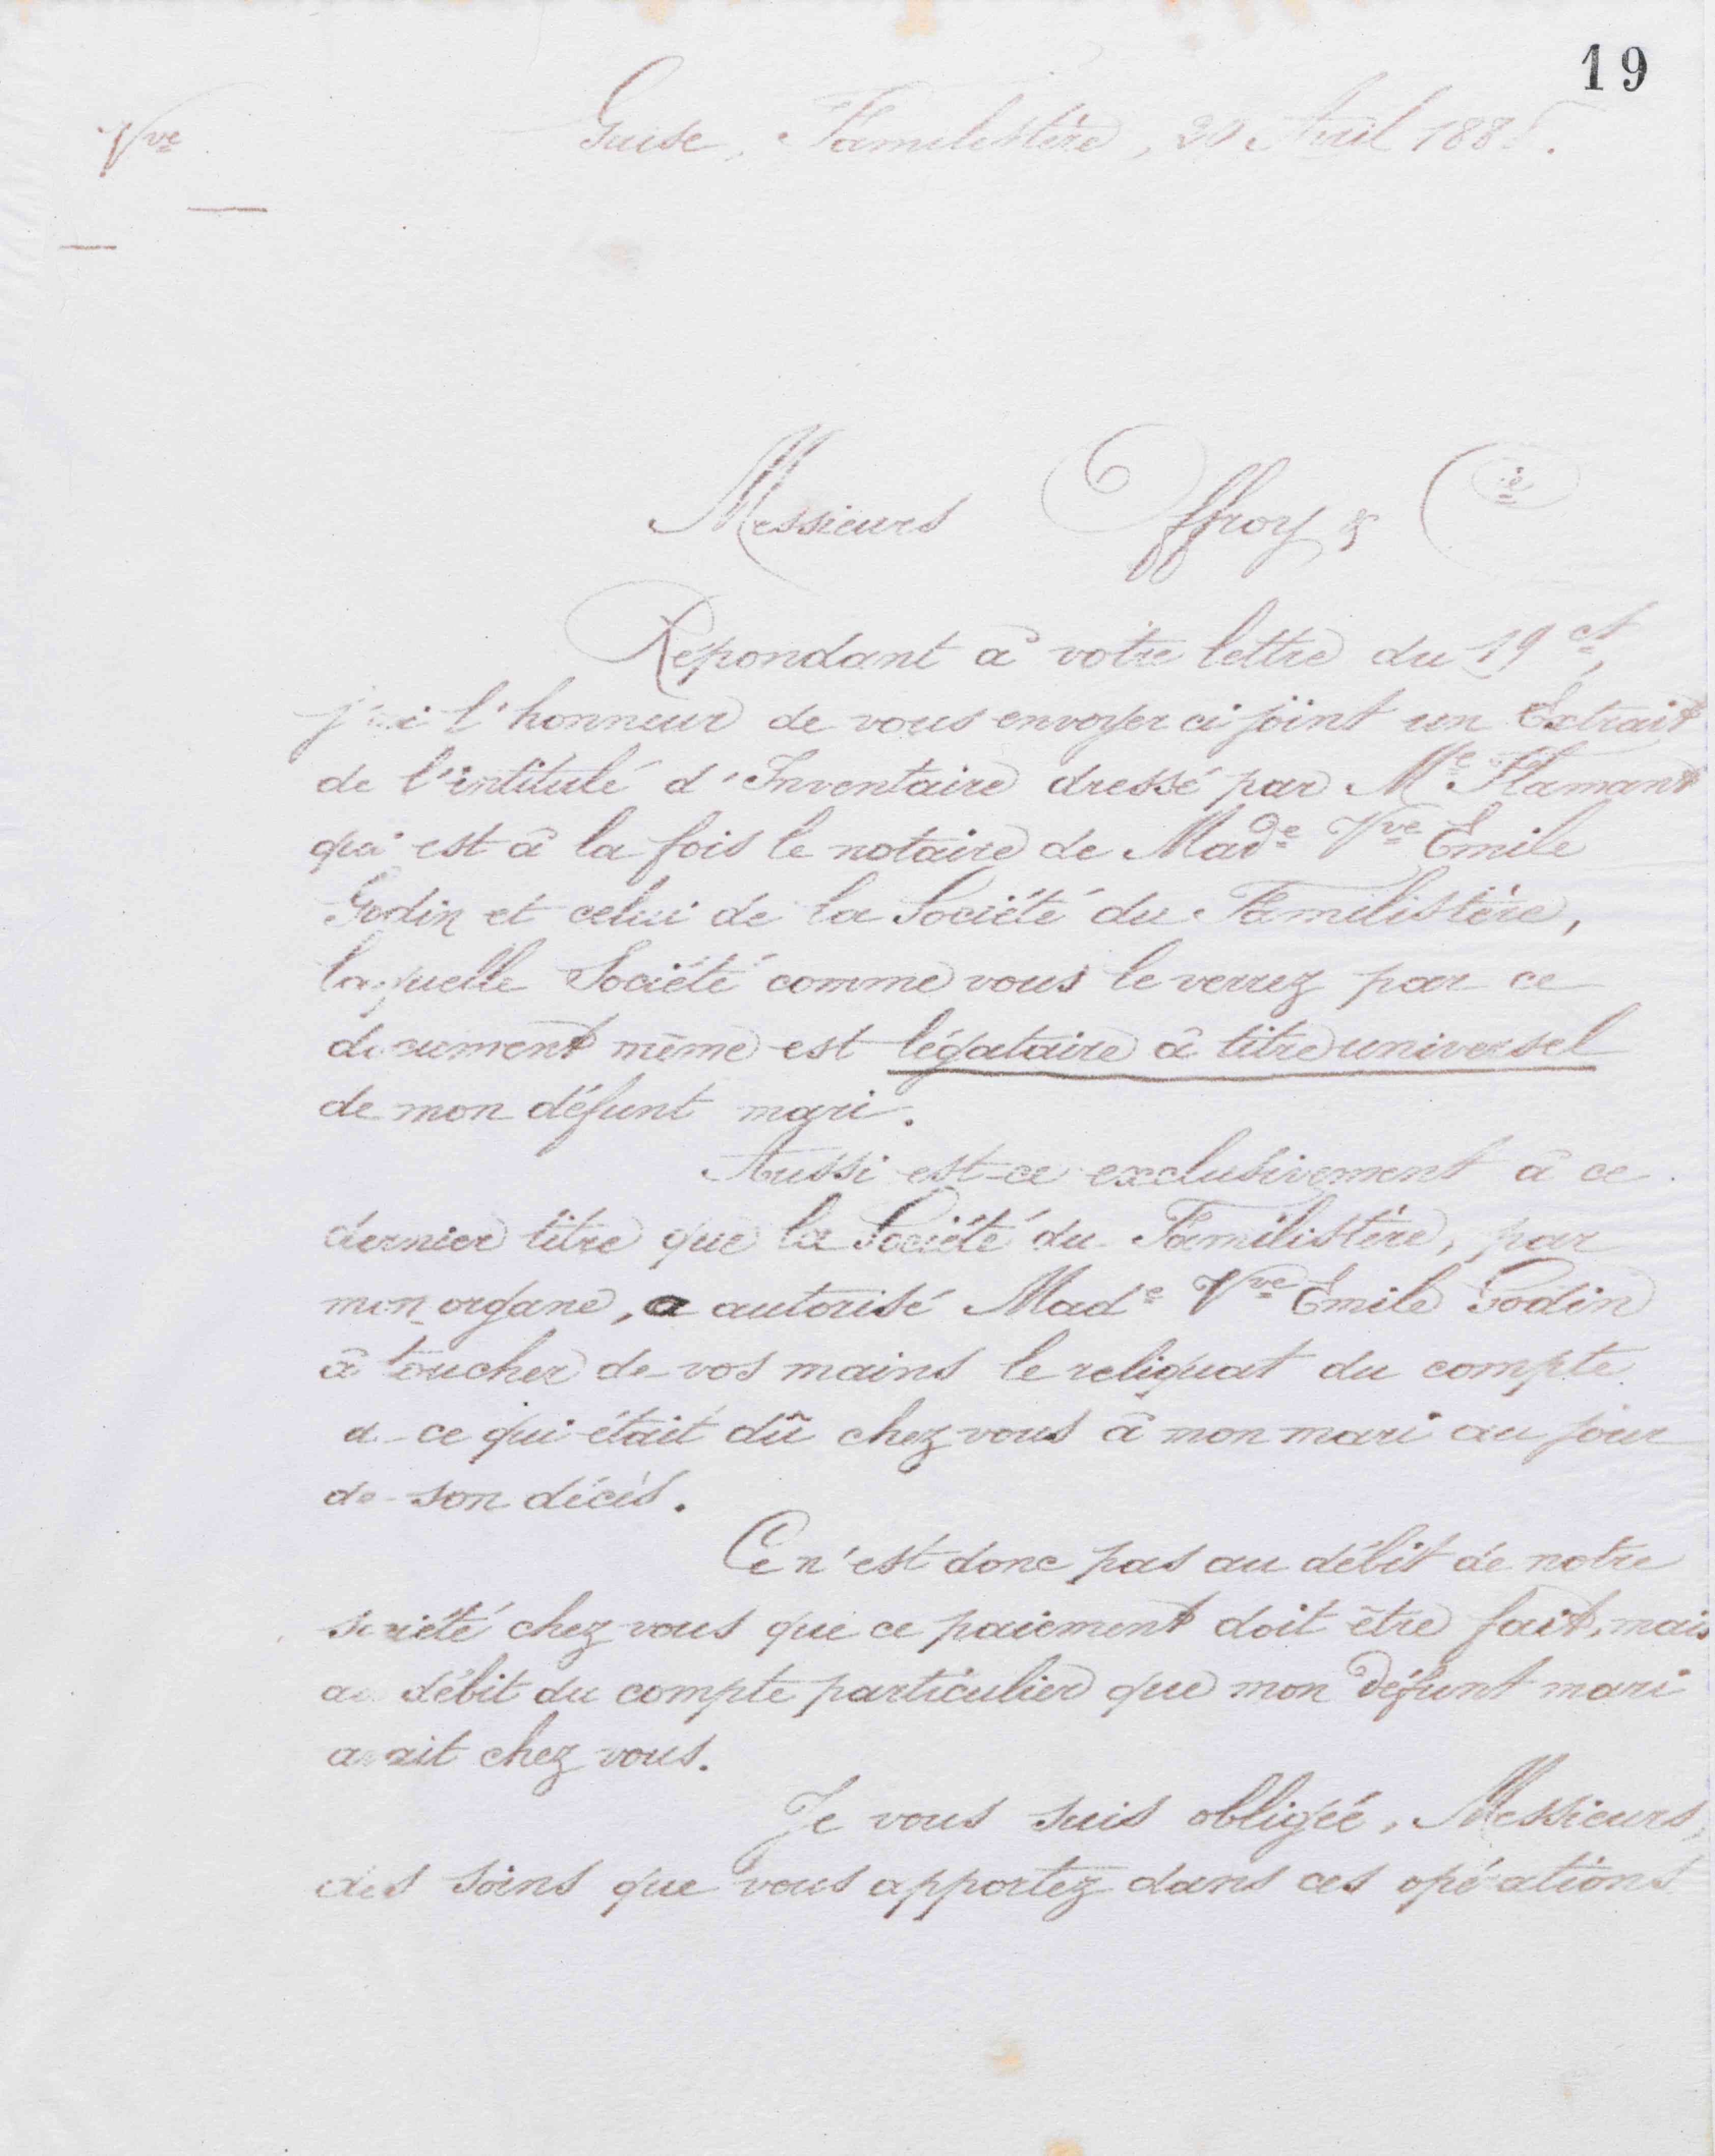 19
Vve
Guise, Familistère, 20 Avril 1888.
Messieurs Offroy & Cie
Répondant à votre lettre du 19 ct,
j'ai l'honneur de vous envoyer ci joint un Extrait
de l'intitulé d'Inventaire dressé par Me Flamant
qui est à la fois le notaire de Made Vve Emile
Godin et celui de la Société du Familistère,
laquelle Société comme vous le verrez par ce
document même est légataire à titre universel
de mon défunt mari.
Aussi est-ce exclusivement à ce
dernier titre que la Société du Familistère, par
mon organe, a autorisé Made Vve Emile Godin
à toucher de vos mains le reliquat du compte
ce qui était dû chez vous à mon mari au jour
de son décès.
Ce n'est donc pas au débit de notre
société chez vous que ce paiement doit être fait, mais
au débit du compte particulier que mon défunt mari
avait chez vous.
Je vous suis obligée, Messieurs,
des soins que vous apportez dans ces opérations